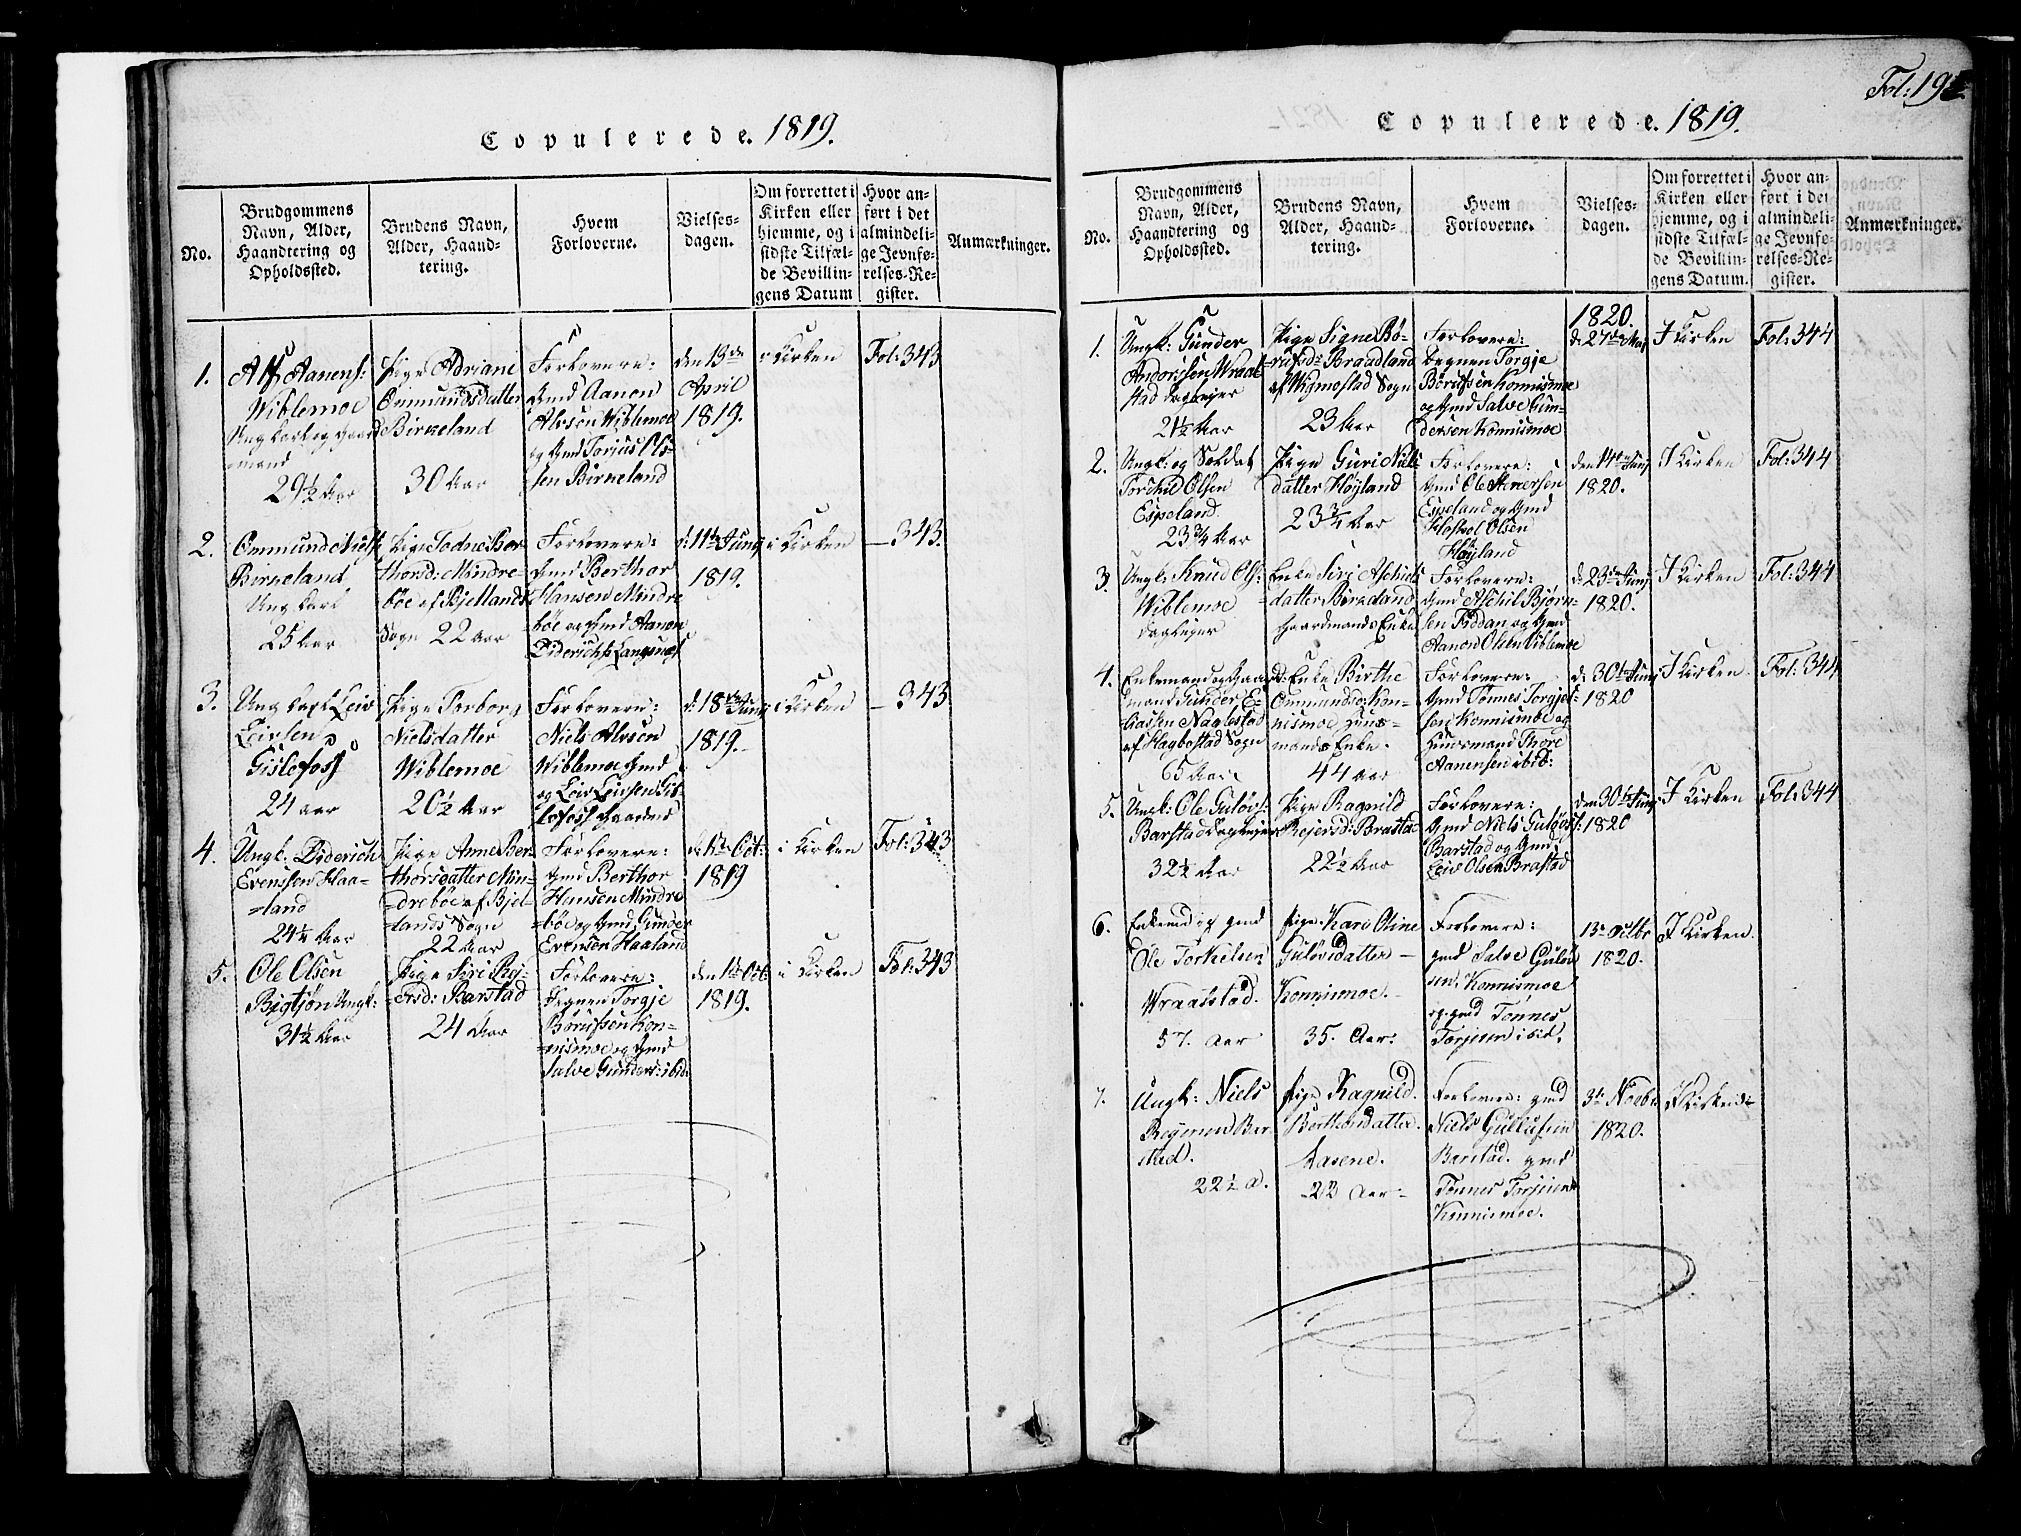 Copulerede. 1819.
No.
Brudgommens
Navn, Alder,
Haandtering og
Opholdssted.
Brudens Navn,
Alder, Haand-
tering.
Hvem
Forloverne.
Vielses-
dagen.
Om forrettet i
Kirken eller
hjemme, og i
sidste Tilfæl-
de Bevillin-
gens Datum
Hvor an-
ført i det
almindeli-
ge Jevnfø-
relses-Re-
gister.
Anmærkninger.
1.
Alf Aanens:
Wiblemoe
Ungkarl og Gaard
mand
29½ Aar
Pige Adriane
Onmundsdatter
Birkeland
30 Aar
Forlovere:
Gmd Aanon
Alvsen Wiblemoe
og Gmd Torjus Ols-
sen Birkeland
den 13de
April
1819.
i Kirken
Fol: 343
2.
Onmund Niels:
Birkeland
Ung karl
25 Aar
Pige Todne Ber
thorsd: Mindre-
böe af Bjellands
Sogn 22 Aar
Forlovere:
Gmd Berthor
Hansen Mindre
böe og Gmd Aanon
Diderichs: Langnæs
d: 11te Junj
1819.
i Kirken
— 343.
3.
Ungkarl Leiv
Leivsen
Gislefoss
24 aar
Pige Torborg
Nielsdatter
Wiblemoe
20½ Aar
Forlovere:
Niels Alvsen
Wiblemoe Gmd
og Leiv Leivsen Gis
lefoss Gaardmd
d: 18de Junj
1819.
i Kirken
— 343
4.
Ungk: Diderich
Evensen Haa-
land
24½ Aar
Pige Anne Ber-
thorsdatter Min-
dreböe af Bjel-
lands Sogn
22 Aar
Forlovere:
Gmd Berthor
Hansen Mindre
böe og Gmd Gunder
Evensen Haaland
de 1te Oct:
1819
i Kirken
Fol: 343
5.
Ole Olsen
Bigtjön Ungk:
31½ Aar
Pige Siri Rej-
ersd: Barstad
24 Aar
Forlovere:
Tegnen Torgje
Börufssen Kon-
nismoe og Gmd
Salve Gunders: ibid.
den 1te Oct
1819.
i Kirken
Fol: 343
Fol: 19
Copulerede. 1819.
No.
Brudgommens
Navn, Alder,
Haandtering og
Opholdssted.
Brudens Navn,
Alder, Haand-
tering.
Hvem
Forloverne.
Vielses-
dagen.
Om forrettet i
Kirken eller
hjemme, og i
sidste Tilfæl-
de Bevillin-
gens Datum.
Hvor an-
ført i det
almindeli-
ge Jevnfø-
relses-Re-
gister.
Anmærkninger.
1.
Ungk: Gunder
Andorssen Wraal
stad Dagleyer
21½ Aar
Pige Signe Bö-
rufsd: Braadland
af Wigmostad Sogn
23 Aar
Forlovere:
Tegnen Torgje
Börufssen Konnismoe
og Gmd Salve Gun-
dersen Konnismoe
1820.
d: 27de Maj
I Kirken
Fol: 344
2.
Ungk: og Soldat
Torkild Olsen
Espeland
23¾ Aar
Pige Guri Niels
datter Höyland
23¾ Aar
Forlovere:
Gmd Ole
Espeland og Gmd
Olsen
Höyland
den 14de Junj
1820.
I Kirken
Fol: 344
3.
Ungk: Knud Ols:
Wiblemoe
Dagleyer
Enke Siri Aschiels
datter Birkeland
Gaardmands Enke
Forlovere:
Gmd Aschil Björn-
sen Fiddan og Gmd
Aanon Olsen Viblemoe
d: 23de Junj
1820.
I Kirken
Fol: 344
4.
Enkemand og Gaard
mand Gunder E-
liassen Naglestad
af Hægbostad Sogn
65 Aar
Enke Birthe
Onmundsd: Kon-
nismoe Huus-
mands Enke.
44 aar
Forlovere:
Gmd Tönnes Torgjes-
sen Konnismoe og
Huusmand Thore
Aanensen ibid:
d: 30te Junj
1820
I Kirken
Fol: 344
5.
Ungk: Ole Gulövs:
Barstad Dagleyer
32½ Aar
Pige Ragnild
Rejersd: Brastad
22½ Aar
Forlovere:
Gmd Niels Gulövs:
Barstad og Gmd
Leiv Olsen Brastad
den 30te Junj
1820
I Kirken
Fol: 344
6.
Enkemd og gmd
Ole Torkelsen
Wraalstad.
57. Aar
Pige Karo Oline
Gulövsdatter —
Konnismoe. —
35. Aar:
Forlovere:
gmd Salve Gulöv
sen. Konnismoe
og gmd Tönnes
Torjesen ibid.
13de Octbr
1820.
I Kirken.
7.
Ungk: Niels
Rejersen Bar-
stad.
22½ A.
Pige Ragnild.
Berthendatter.
Aasene.
22 Aar:
Forlovere: gmd
Niels Gullufsen
Barstad. gmd
Tönnes Torjesen
Konnismoe.
3de Novbr
1820.
I Kirken